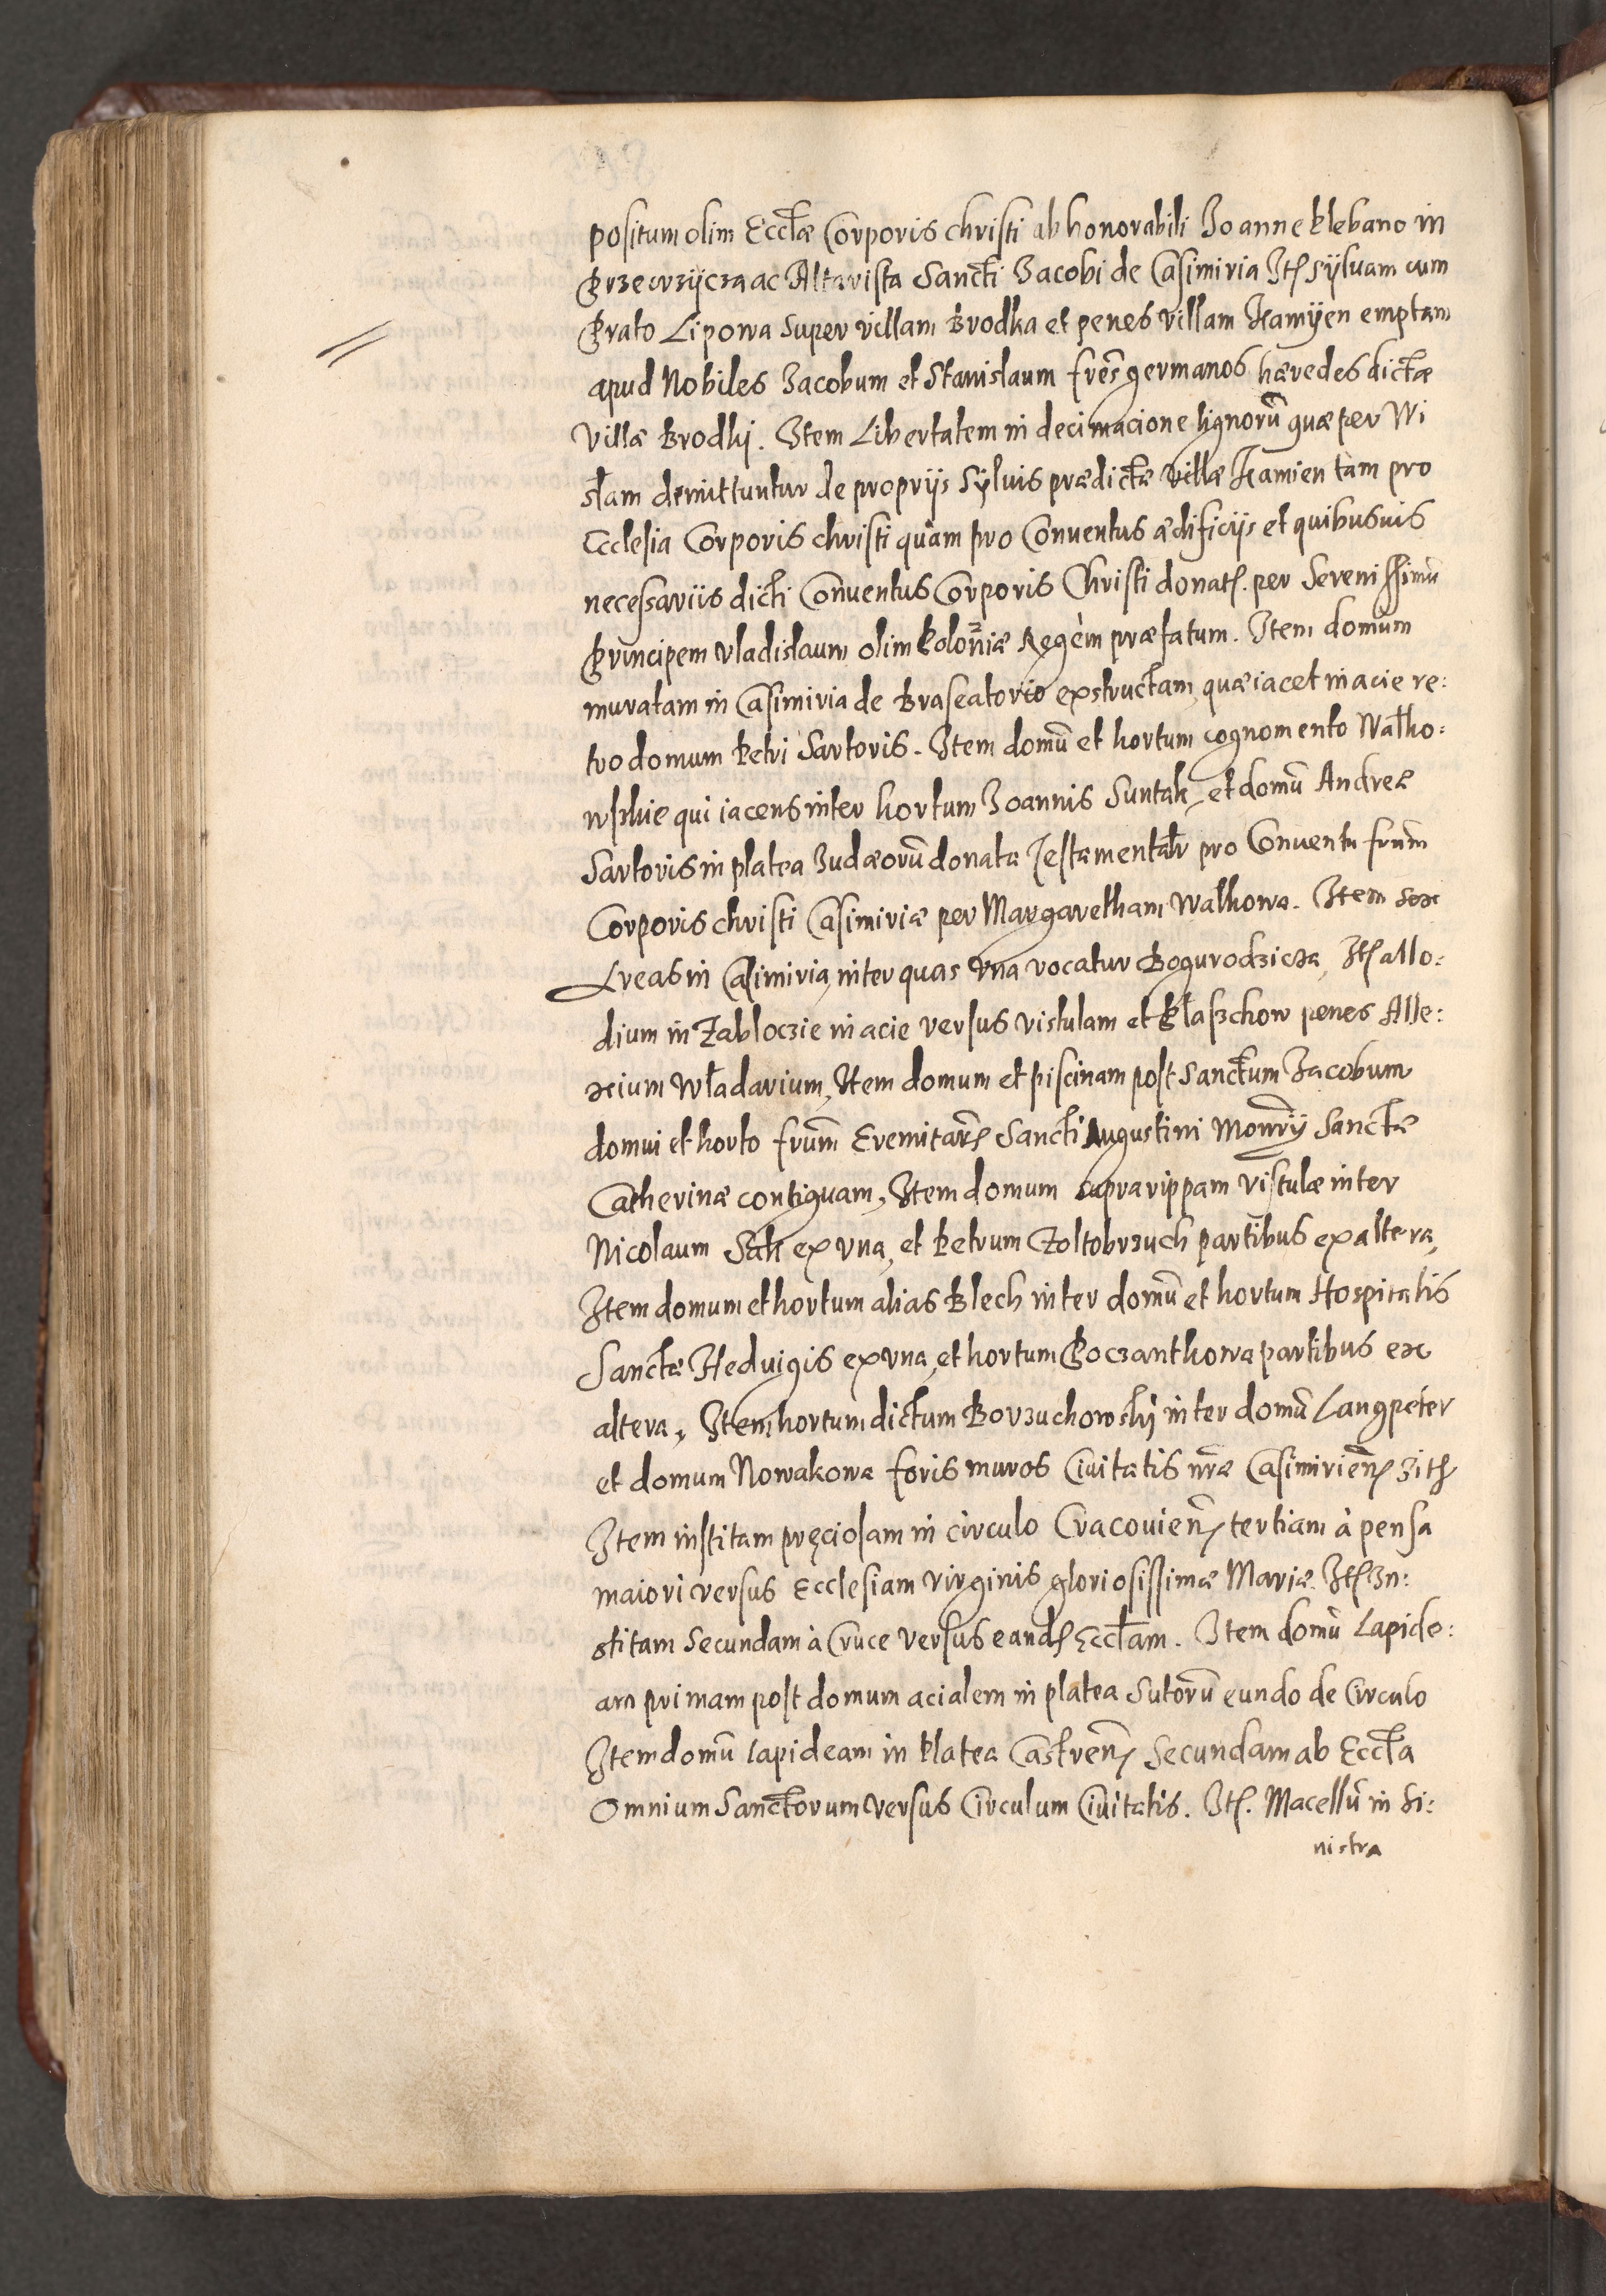 positum olim Eccłæ Corporis christi ab honorabili Joanne Klebano in
Przewzÿcza ac Altarista Sancti Jacobi de Casimiria Itē sÿluam cum
Prato Lipowa super villam Brodka et penes villam Kamÿen emptam
apud Nobiles Jacobum et Stanislaum frēs germanos hæredes dictæ
Villæ Brodkj. Item Libertatem in decimacione lignorū quæ per Wi
słam demittuntur de proprijs Sÿluis prædictæ villæ Kamien tàm pro
Ecclesia Corporis christi quàm pro Conuentus ædificijs et quibusuis
necessariis dicti Conuentus Corporis Christi donatē. per Serenissimū
Principem Vladislaum olim Poloniæ Regem præfatum. Item domum
muratam in Casimiria de Braseatorio exstructam, quæ iacet in acie re:
tro domum Petri Sartoris. Item domū et hortum cognomento Walko:
wskie qui iacens inter hortum Joannis Suntak, et domū Andreæ
Sartoris in platea Judæorū donata Testamentałr pro Conuentu frūm
Corporis christi Casimiriæ per Margaretham Walkowa. Item sex
Areas in Casimiria, inter quas vna vocatur Bogurodzicza, Itē allo:
dium in Zabloczie in acie versus vistulam et Płaszchow penes Alle:
xium Władarium, Item domum et piscinam post Sanctum Jacobum
domui et horto frūm Eremitarē Sancti Augustini Monrÿ Sanctæ
Catherinæ contiguam, Item domum supra rippam Vistulæ inter
Nicolaum Sak ex vna, et Petrum Zoltobrzuch partibus ex altera,
Item domum et hortum alias Blech inter domū et hortum Hospitalis
Sanctæ Hedvigis ex vna, et hortum Poczanthowa partibus ex
altera, Item hortum dictum Borzuchowskj inter domū Langpeter
et domum Nowakowa foris muros Ciuitatis nræ Casimirienē sitē
Item institam pręciosam in circulo Cracouienē tertiam à pensa
maiori versus Ecclesiam virginis gloriosissimæ Mariæ. Itē In:
stitam Secundam à Cruce versus eandē Eccłam. Item domū Lapide:
am primam post domum acialem in platea Sutorū eundo de Circulo
Item domū Lapideam in Platea Castrenē Secundam ab Eccła
Omnium Sanctorum versus Circulum Ciuitatis. Itē. Macellū in Si:
nistra